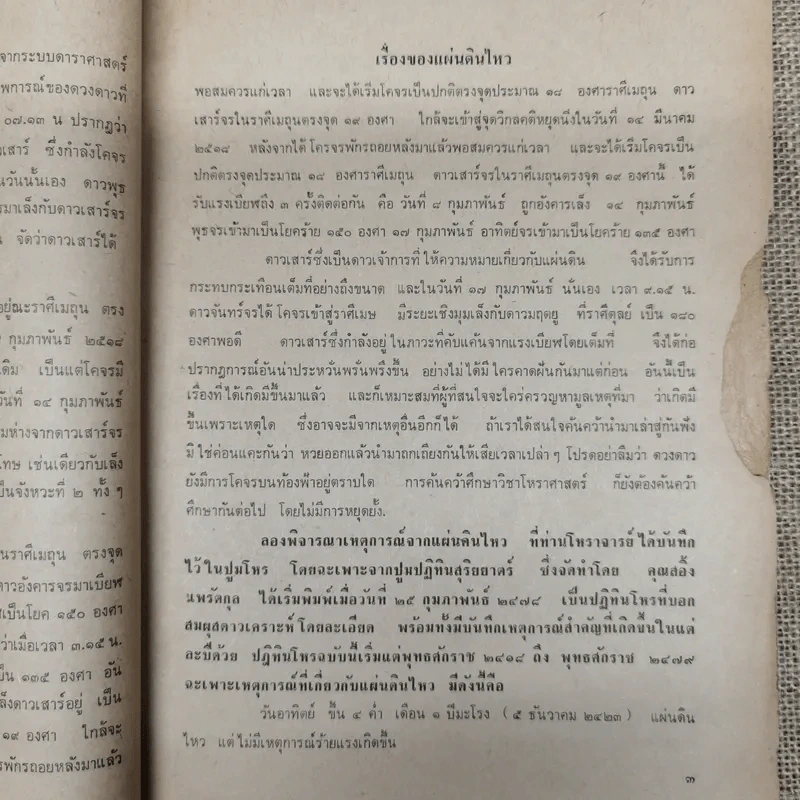 จากระบบดาราศาสตร์
พการณ์ของดวงดาวที่
๐๗.๑๓ น ปรากฏว่า
เสาร์ ซึ่งกำลังโคจร
นวันนั้นเอง ดาวพุธ
รมาเล็งกับดาวเสาร์จร
จัดว่าดาวเสาร์ได้
อยู่ณะราศีเมถุน ตรง
กุมภาพันธ์ ๒๕๑๘
ดิม เป็นแต่โคจรมี
วันที่ ๑๔ กุมภาพันธ์
มห่างจากดาวเสาร์จร
โทษ เช่นเดียวกับเล็ง
ป็นจังหวะที่ ๒ ทั้ง ๆ
นราศีเมถุน ตรงจุด
ดาวอังคารจรมาเบียฬ
สเป็นโยค ๑๕๐ องศา
ว่าเมื่อเวลา ๓.๑๕ น.
ป็น ๑๓๕ องศา อัน
ล็งดาวเสาร์อยู่ เป็น
๑๙ องศา ใกล้จะ
รพักรถอยหลังมาแล้ว
เรื่องของแผ่นดินไหว
พอสมควรแก่เวลา และจะได้เริ่มโคจรเป็นปกติตรงจุดประมาณ ๑๘ องศาราศีเมถุน ดาว
เสาร์จรในราศีเมถุนตรงจุด ๑๙ องศา ใกล้จะเข้าสู่จุดวิกลคติหยุดนึ่งในวันที่ ๑๔ มีนาคม
๒๕๑๘ หลังจากได้โคจรพักรถอยหลังมาแล้วพอสมควรแก่เวลา และจะได้เริ่มโคจรเป็น
ปกติตรงจุดประมาณ ๑๘ องศาราศีเมถุน ดาวเสาร์จรในราศีเมถุนตรงจุด ๑๙ องศานี้ ได้
รับแรงเบียฬถึง ๓ ครั้งติดต่อกัน คือ วันที่ ๘ กุมภาพันธ์ ถูกอังคารเล็ง ๑๔ กุมภาพันธ์
พุธจรเข้ามาเป็นโยคร้าย ๑๕๐ องศา ๑๗ กุมภาพันธ์ อาทิตย์จรเข้ามาเป็นโยคร้าย ๑๓๕ องศา
ดาวเสาร์ซึ่งเป็นดาวเจ้าการที่ให้ความหมายเกี่ยวกับแผ่นดิน จึงได้รับการ
กระทบกระเทือนเต็มที่อย่างถึงขนาด และในวันที่ ๑๗ กุมภาพันธ์ นั่นเอง เวลา ๙.๑๕ น.
ดาวจันทร์จรได้โคจรเข้าสู่ราศีเมษ มีระยะเชิงมุมเล็งกับดาวมฤตยู ที่ราศีตุลย์ เป็น ๑๘๐
องศาพอดี ดาวเสาร์ซึ่งกำลังอยู่ในภาวะที่คับแค้นจากแรงเบียฬโดยเต็มที่ จึงได้ก่อ
ปรากฏการณ์อันน่าประหวั่นพรั่นพรึงขึ้น อย่างไม่ได้มีใครคาดฝันกันมาแต่ก่อน อันนี้เป็น
เรื่องที่ได้เกิดมีขึ้นมาแล้ว และก็เหมาะสมที่ผู้ที่สนใจจะใคร่ครวญหามูลเหตุที่มา ว่าเกิดมี
ขึ้นเพราะเหตุใด ซึ่งอาจจะมีจากเหตุอื่นอีกก็ได้ ถ้าเราได้สนใจค้นคว้านำมาเล่าสู่กันฟัง
มิใช่ค่อนแคะกันว่า หวยออกแล้วนำมาถกเถียงกันให้เสียเวลาเปล่า ๆ โปรดอย่าลืมว่า ดวงดาว
ยังมีการโคจรบนท้องฟ้าอยู่ตราบใด การค้นคว้าศึกษาวิชาโหราศาสตร์ ก็ยังต้องค้นคว้า
ศึกษากันต่อไป โดยไม่มีการหยุดยั้ง.
ลองพิจารณาเหตุการณ์จากแผ่นดินไหว ที่ท่านโหราจารย์ได้บันทึก
ไว้ในปูมโหร โดยฉะเพาะจากปูมปฏิทินสุริยยาตร์ ซึ่งจัดทำโดย คุณสอิ้ง
นพรัตกุล ได้เริ่มพิมพ์เมื่อวันที่ ๒๕ กุมภาพันธ์ ๒๔๗๘ เป็นปฏิทินโหรที่บอก
สมผุสดาวเคราะห์โดยละเอียด พร้อมทั้งมีบันทึกเหตุการณ์สำคัญที่เกิดขึ้นในแต่
ละปีด้วย ปฏิทินโหรฉบับนี้เริ่มแต่พุทธศักราช ๒๔๑๘ ถึง พุทธศักราช ๒๔๗๙
ฉะเพาะเหตุการณ์ที่เกี่ยวกับแผ่นดินไหว มีดังนี้คือ
วันอาทิตย์ ขึ้น ๔ ค่ำ เดือน ๑ ปีมะโรง ( ๕ ธันวาคม ๒๔๒๓ ) แผ่นดิน
ไหว แต่ไม่มีเหตุการณ์ร้ายแรงเกิดขึ้น
๓